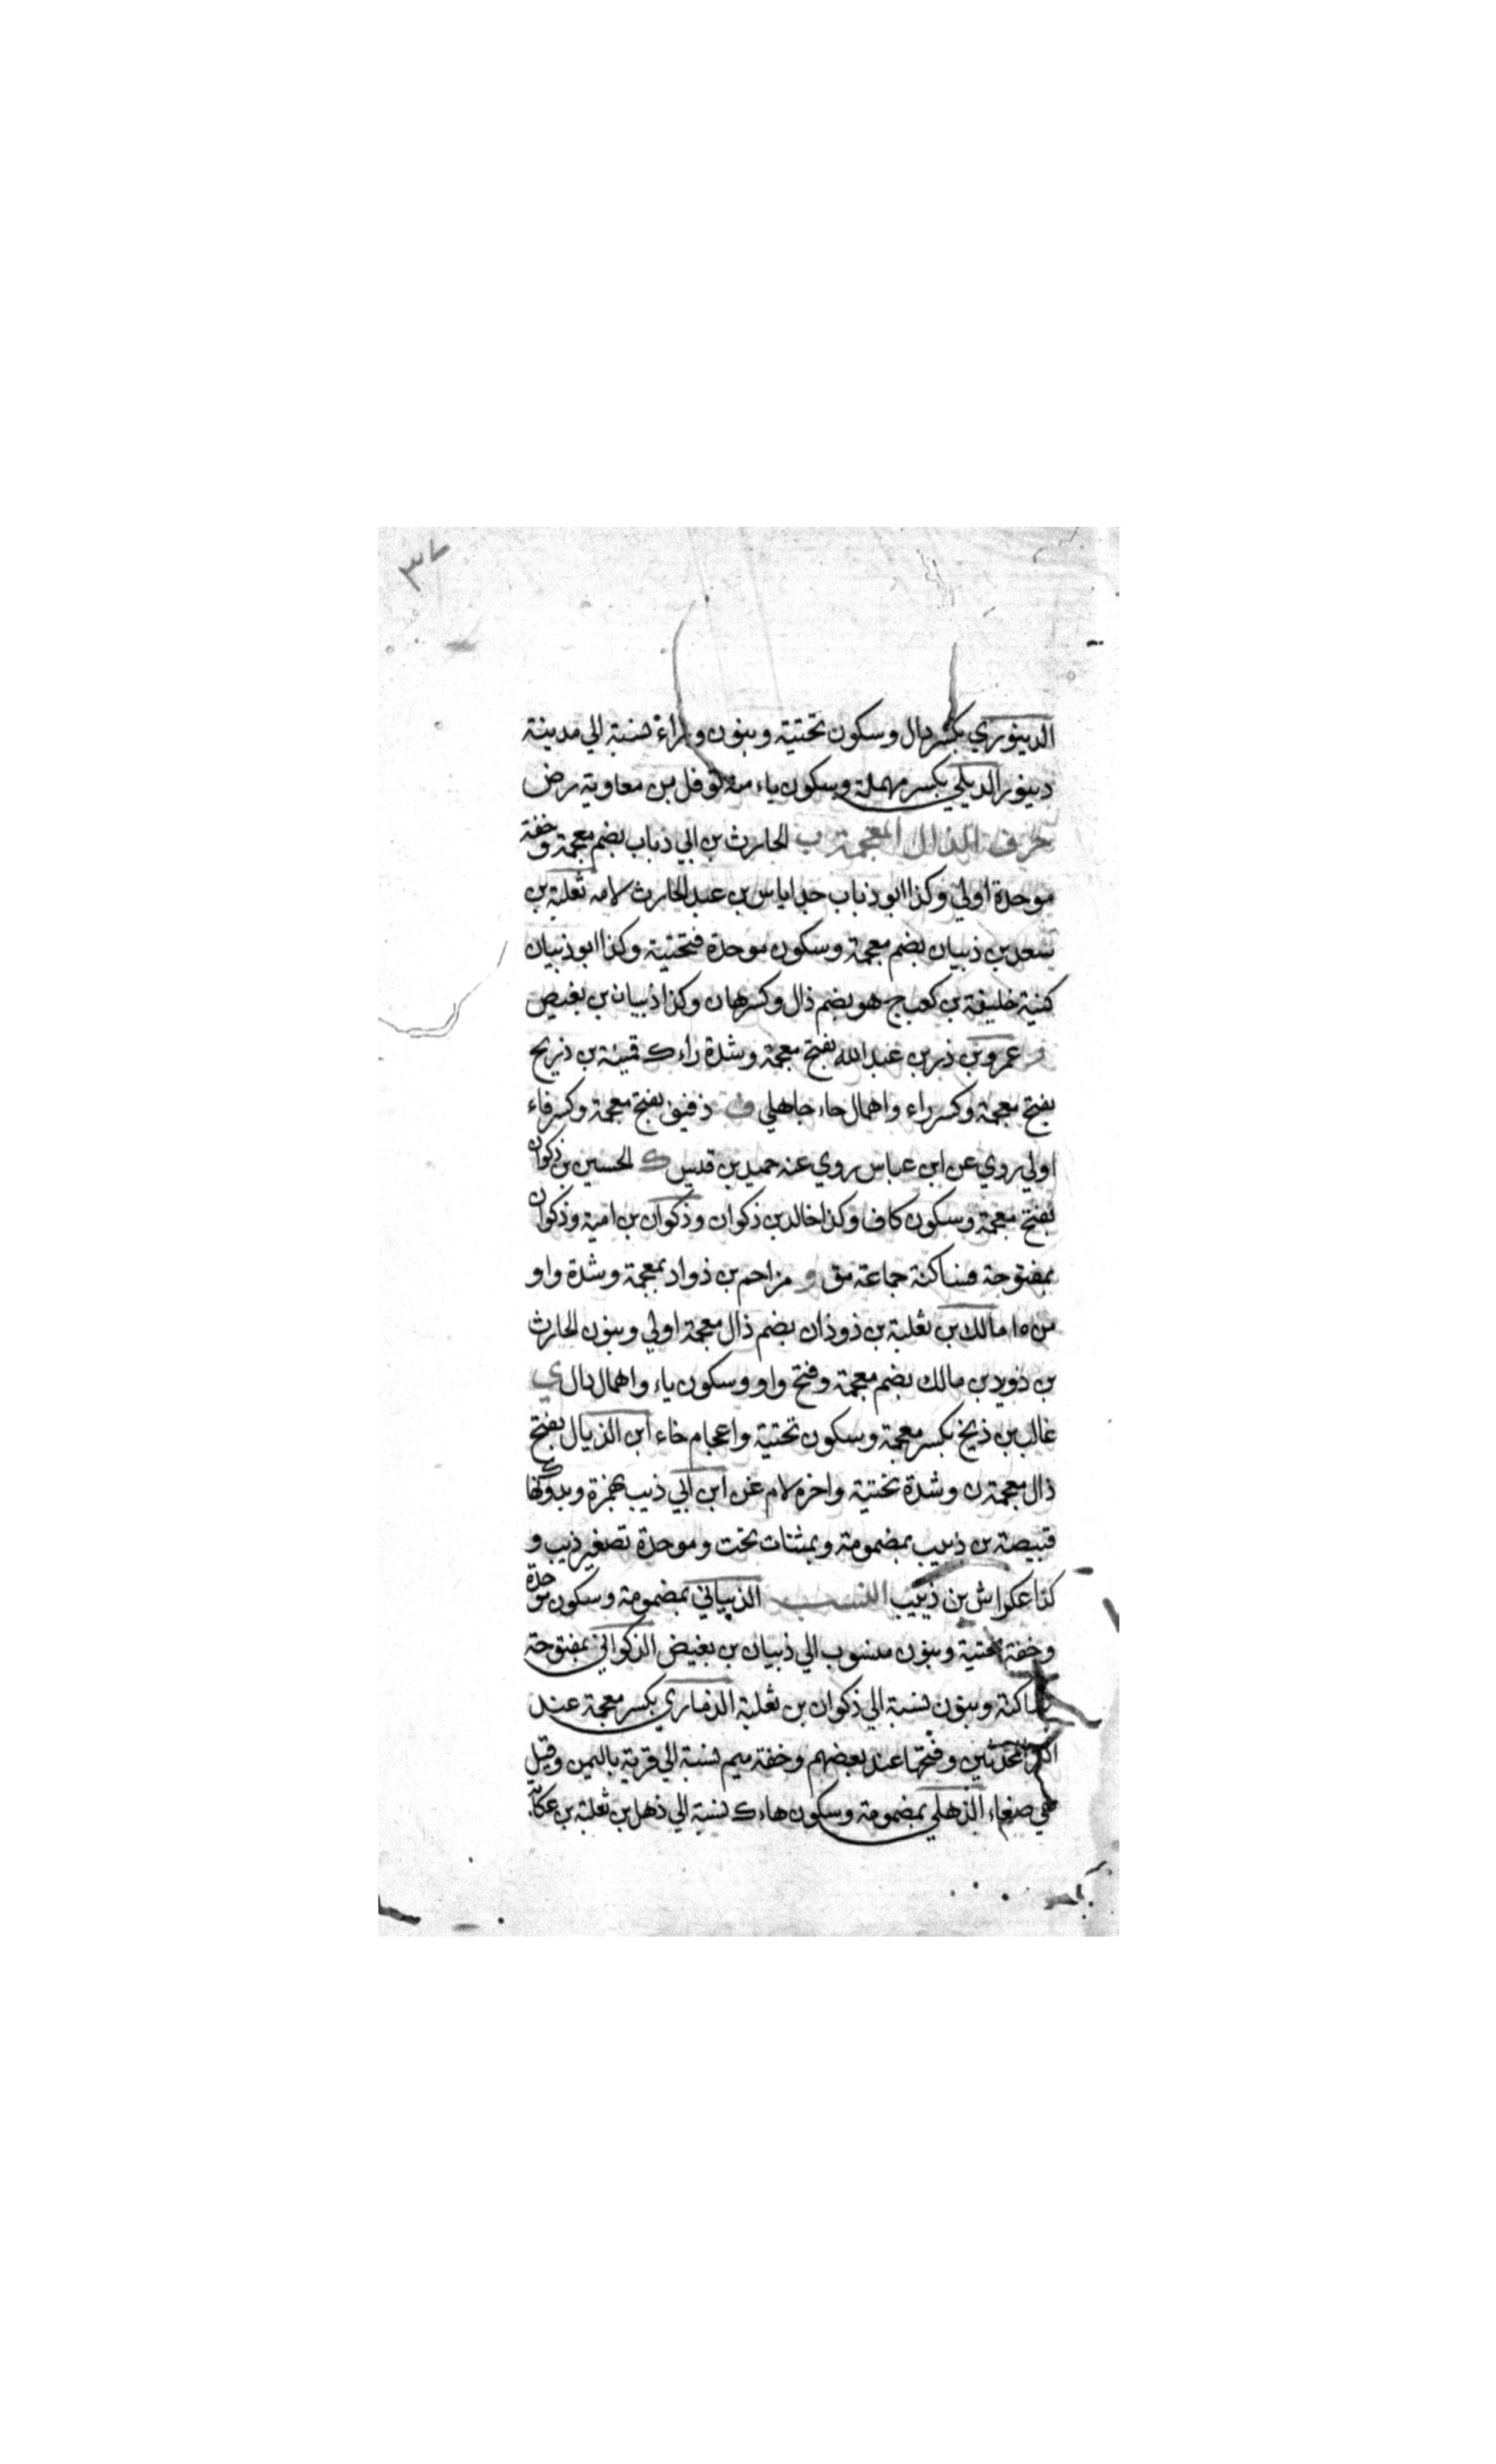 ٣٧
الدينوري بكسر دال وسكون تحتية وبنون وراء نسبة الي مدينة
دينور الديلي بكسر مهملة وسكون ياء منه نوفل بن معاوية رض
حرف الذال المعجمة ب الحارث بن ابي ذباب بضم معجمة وخفة
موحدة اولي وكذا ابو ذباب جد اياس بن عبد الحارث لامه ثعلبة بن
سعد بن ذبيان بضم معجمة وسكون موحدة فتحتية وكذا ابو ذبيان
كنية خليفة بن كعب ج هو بضم ذال وكسرها ن وكذا ذبيان بن بغيض
ر عمرو بن ذر بن عبد الله بفتح معجمة وشدة راء ك قمينة بن ذريح
بفتح معجمة وكسر راء واهمال حاء جاهلي ف ذفيف بفتح معجمة وكسر فاء
اولي روي عن ابن عباس روي عنه حميد بن قيس ك الحسين بن ذكوان
بفتح معجمة وسكون كاف وكذا خالد بن ذكوان وذكوان بن امية وذكوان
بمفتوحة فساكنة جماعة مق و مزاحم بن ذواد بمعجمة وشدة واو
من ١٥ مالك بن ثعلبة بن ذوذان بضم ذال معجمة اولي وبنون الحارث
بن ذويد بن مالك بضم معجمة وفتح واو وسكون ياء واهمال دال ي
غالب بن ذيخ بكسر معجمة وسكون تحتية واعجام خاء ابن الذيال بفتح
ذال معجمة ن وشدة تحتية واخره لام غن ابن ابي ذيب بهمزة وبدونها
قبيصة بن ذييب بمضمومة وبمثنات تحت وموحدة تصغير ذيب و
كذا عكراش بن ذييب النسب الذبياني بمضمومة وسكون موحدة
وخفة تحتية وبنون منسوب الي ذبيان بن بغيض الذكواني بمفتوحة
فساكنة وبنون نسبة الي ذكوان بن ثعلبة الذماري بكسر معجمة عند
اكثر المحدثين وفتحها عند بعضهم وخفة ميم نسبة الي قرية باليمن وقيل
هي صنعاء الذهلي بمضمومة وسكون هاء ك نسبة الي ذهل بن ثعلبة بن عكابة